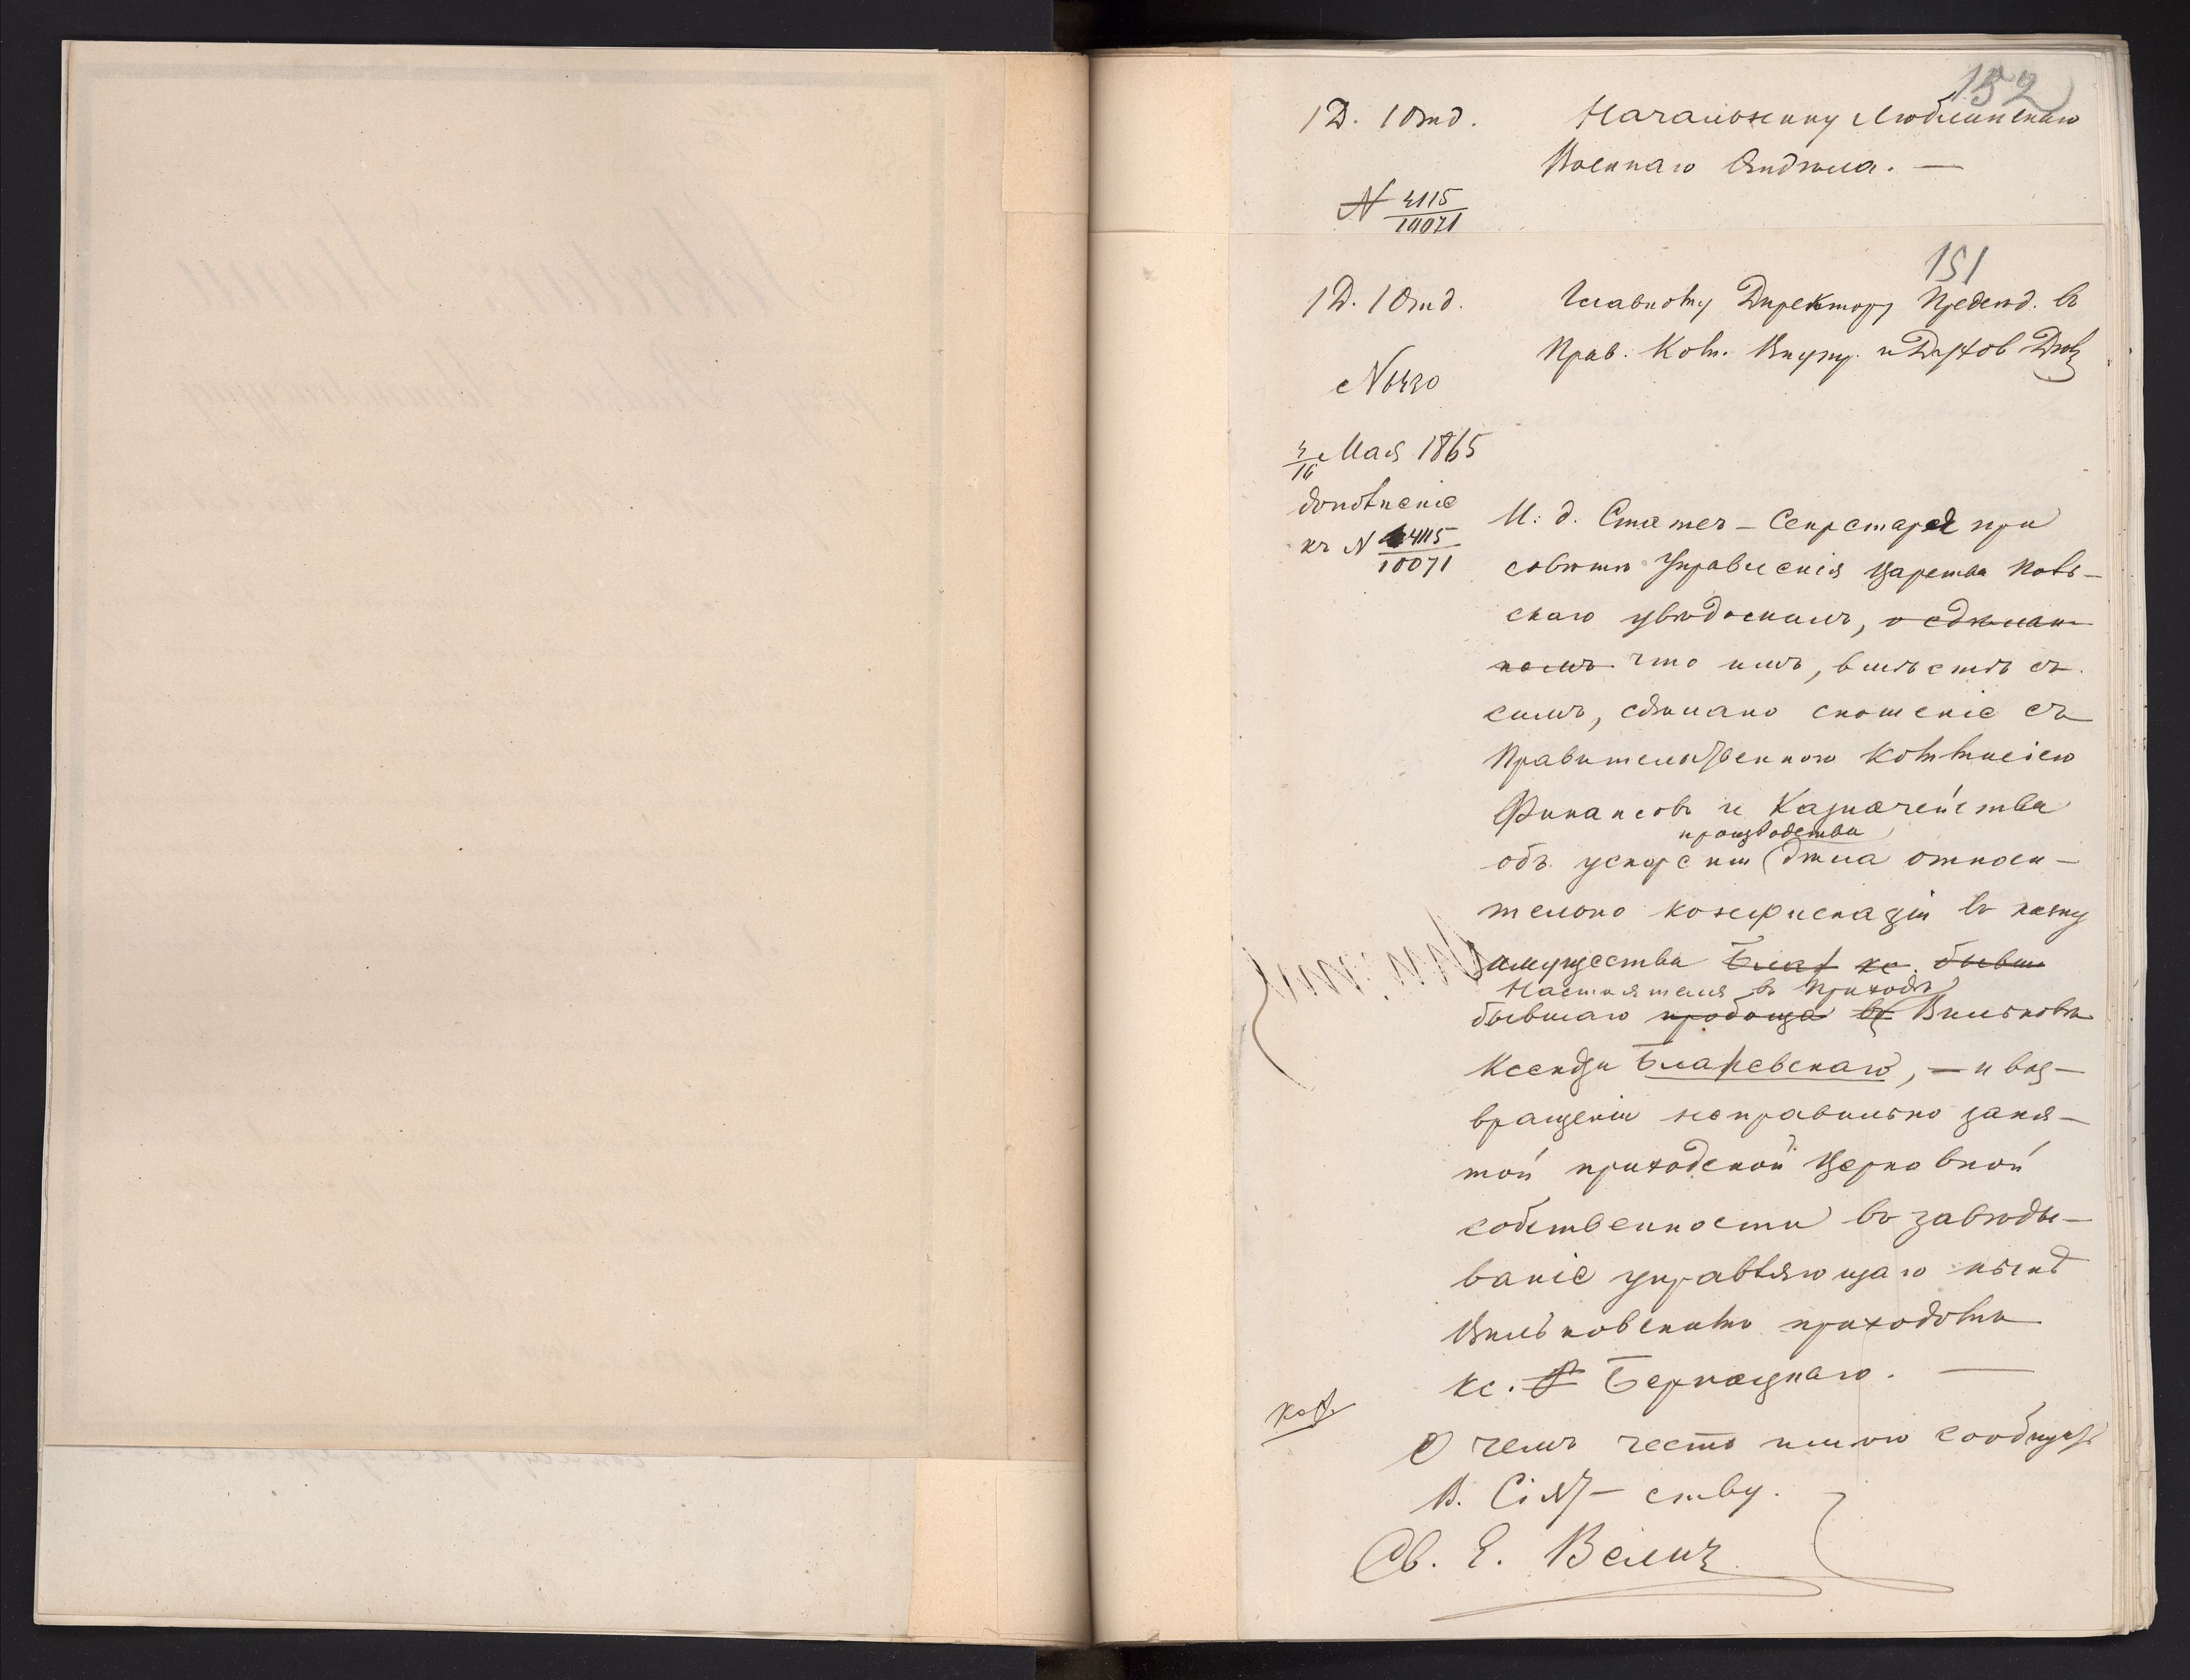 152
1 Д. 1 Отд.
Начальнику Люблинскаго
Военнаго Отдѣла. —
№ 4115/10071
151
1 Д. 1 Отд.
Главному Директору Предсѣд. въ
Прав. Ком. Внутр. и Духов Дѣлъ
№ 6430
4/16 Мая 1865
дополненіе
къ № 4115/10071
И: д. Статсъ-Секретаря при
совѣтѣ Управленія Царства Поль-
скаго увѣдомилъ, о сдѣлан-
номъ что имъ, вмѣстѣ съ
симъ, сдѣлано сношеніе съ
Правительственною Коммисіею
Финансовъ и Казначейства
производства
объ ускореніи дѣла относи-
тельно конфискаціи въ казну
имущества кс. бывш
Настоятеля въ приходѣ
бывшаго пробоща въ Вильковѣ
Ксендза, — и воз-
вращеніи неправильно заня-
той приходской Церковной
собственности въ завѣды-
ваніе управляющаго нынѣ
Вильковскимъ приходомъ
кс.
О чемъ честь имѣю сообщить
В. Сіят-ству.
Св. Е. Велич.